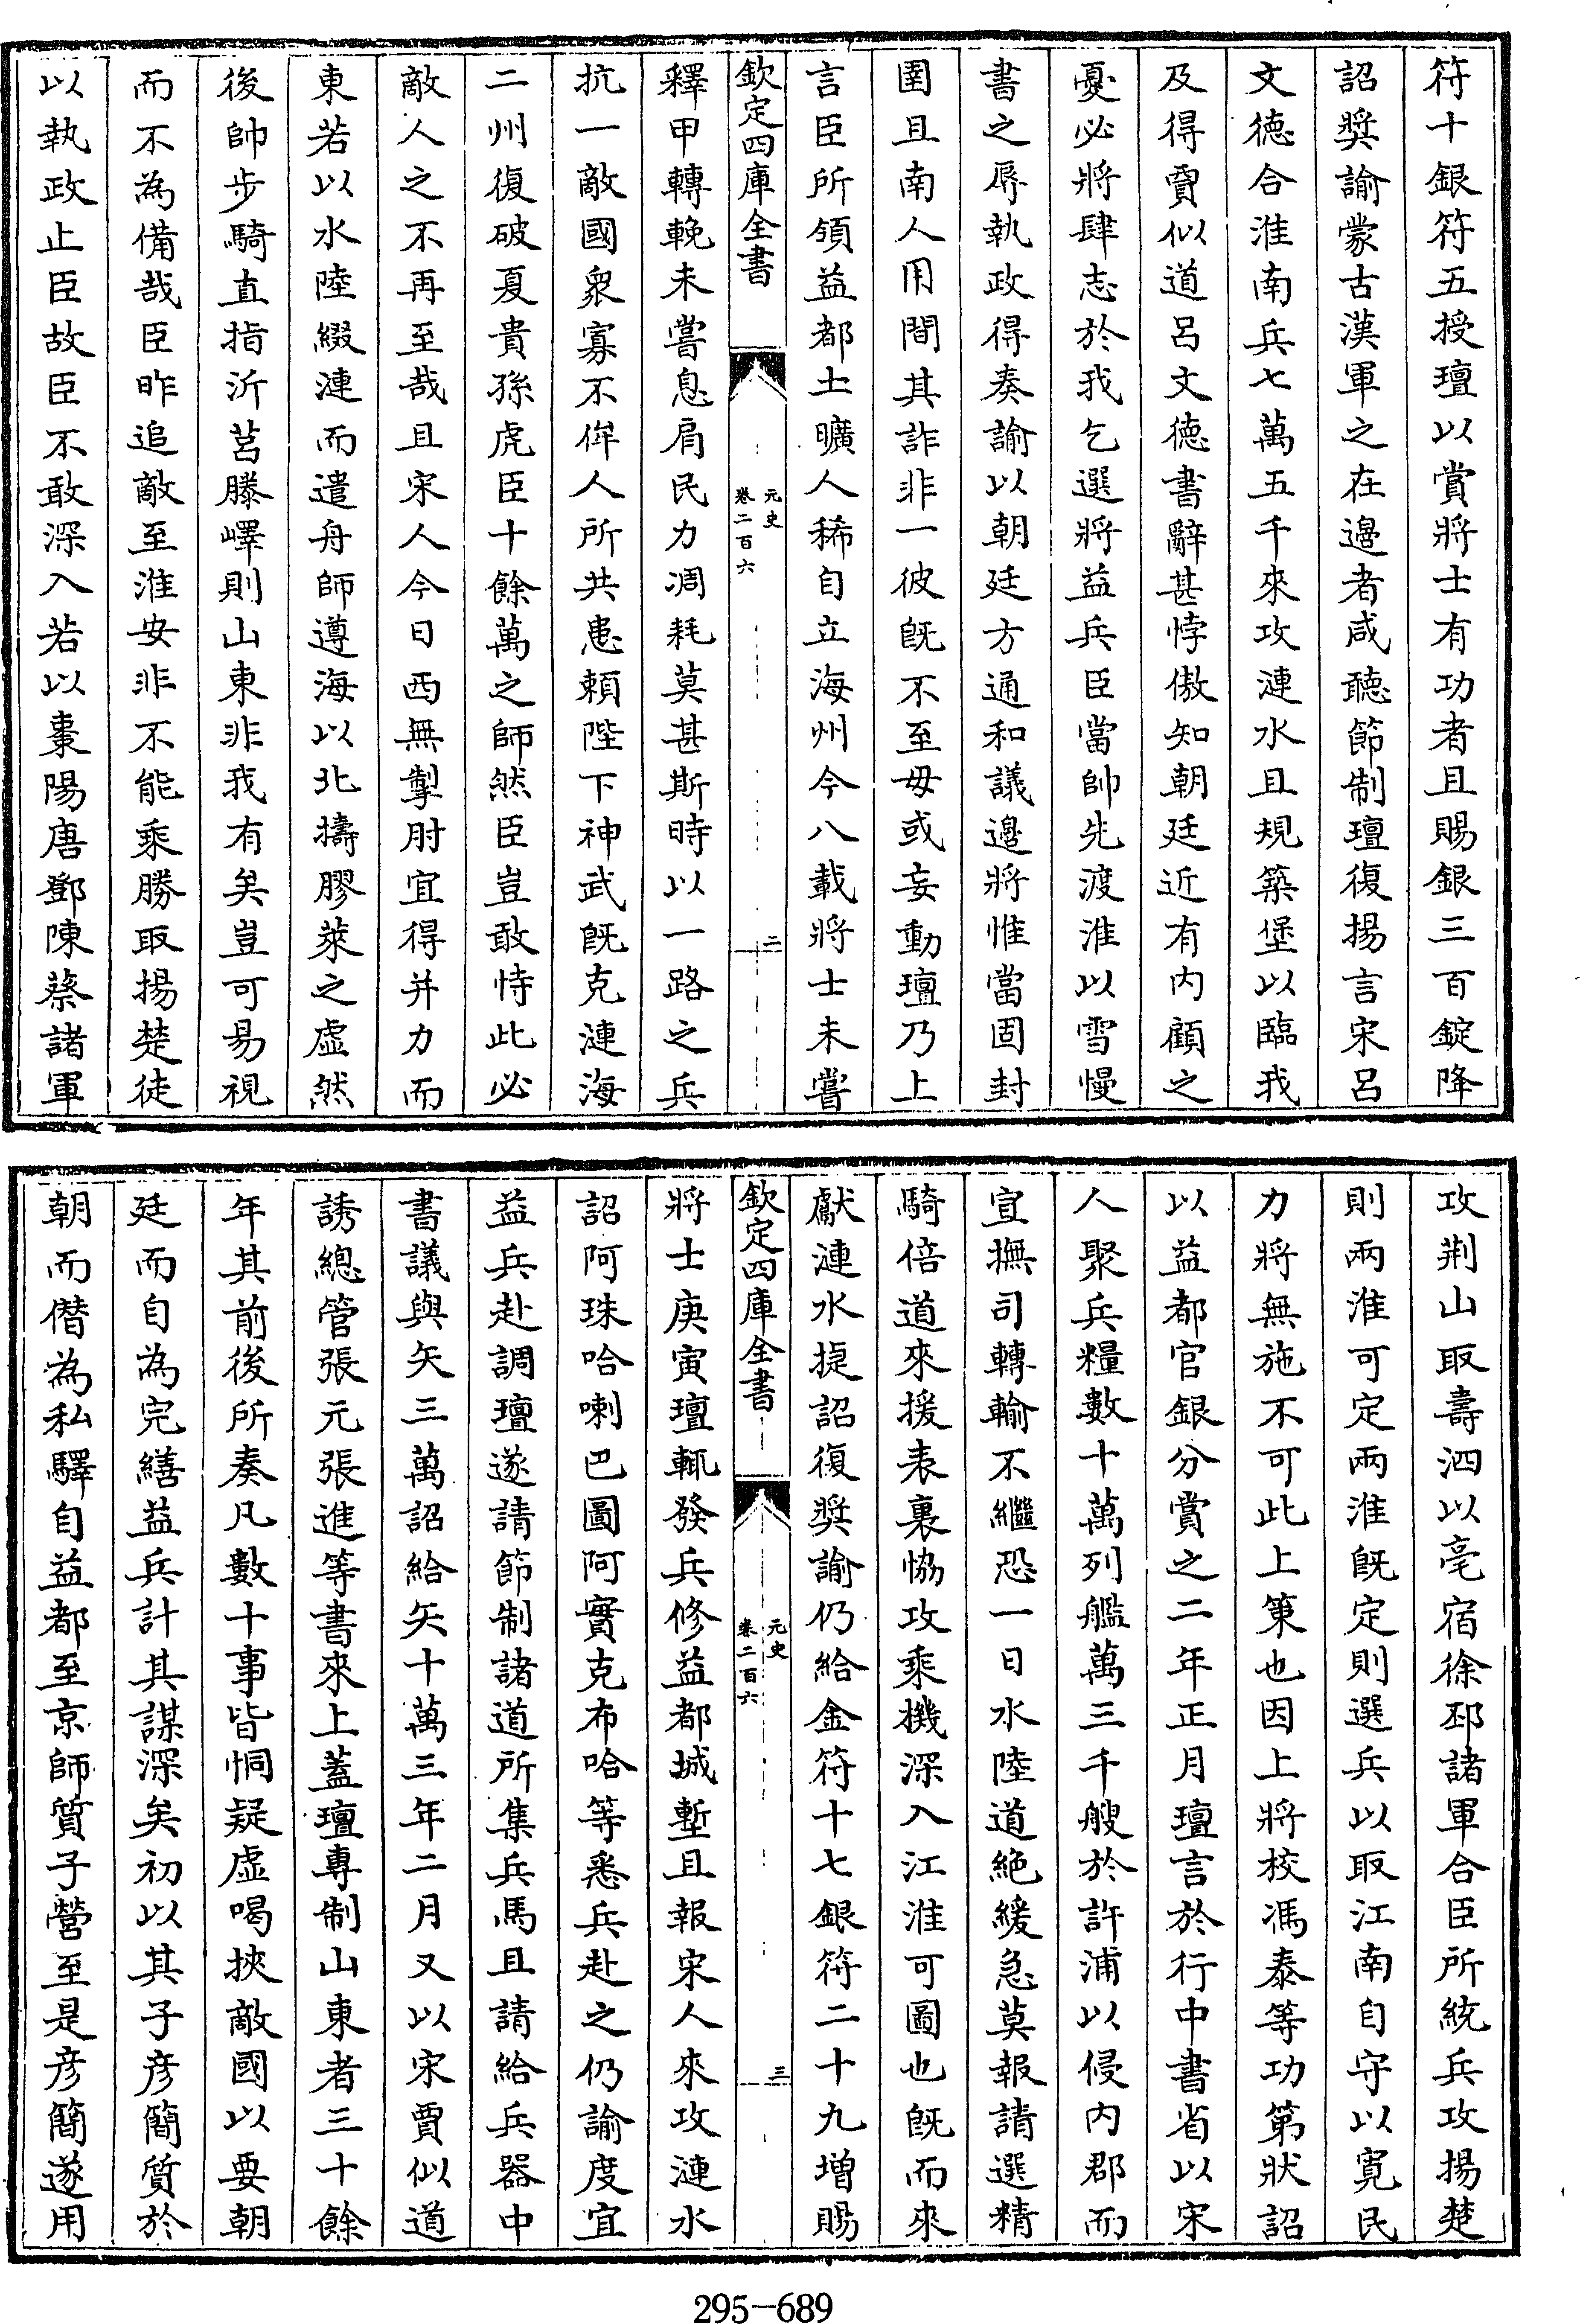 符十銀符五授璮以賞將士有功者且賜銀三百錠降
詔奨諭蒙古漢軍之在邊者咸聽節制璮復揚言宋呂
文德合淮南兵七萬五千來攻漣水且規築堡以臨我
及得賈似道呂文德書辭甚悖傲知朝廷近有内顧之
憂必將肆志於我乞選將益兵臣當帥先渡淮以雪慢
書之辱執政得奏諭以朝廷方通和議邊將惟當固封
圉且南人用間其詐非一彼既不至毋或妄動璮乃上
言臣所領益都土曠人稀自立海州今八載將士未嘗
欽定四庫全書
元史
卷二百六
二
釋甲轉輓未嘗息肩民力凋耗莫甚斯時以一路之兵
抗一敵國衆寡不侔人所共患頼陛下神武既克漣海
二州復破夏貴孫虎臣十餘萬之師然臣豈敢恃此必
敵人之不再至哉且宋人今日西無掣肘宜得并力而
東若以水陸綴漣而遣舟師遵海以北擣膠萊之虛然
後帥步騎直指沂莒滕嶧則山東非我有矣豈可易視
而不為備哉臣昨追敵至淮安非不能乘勝取揚楚徒
以執政止臣故臣不敢深入若以棗陽唐鄧陳蔡諸軍
攻荆山取壽泗以亳宿徐邳諸軍合臣所統兵攻揚楚
則兩淮可定兩淮既定則選兵以取江南自守以寛民
力將無施不可此上策也因上將校馮泰等功第狀詔
以益都官銀分賞之二年正月璮言於行中書省以宋
人聚兵糧數十萬列艦萬三千艘於許浦以侵内郡而
宣撫司轉輸不繼恐一日水陸道絶緩急莫報請選精
騎倍道來援表裏恊攻乘機深入江淮可圖也既而來
獻漣水捷詔復奨諭仍給金符十七銀符二十九增賜
欽定四庫全書
元史
卷二百六
三
將士庚寅璮輒發兵修益都城塹且報宋人來攻漣水
詔阿珠哈喇巴圖阿實克布哈等悉兵赴之仍諭度宜
益兵赴調璮遂請節制諸道所集兵馬且請給兵器中
書議與矢三萬詔給矢十萬三年二月又以宋賈似道
誘總管張元張進等書來上蓋璮專制山東者三十餘
年其前後所奏凡數十事皆恫疑虛喝挾敵國以要朝
廷而自為完繕益兵計其謀深矣初以其子彦簡質於
朝而僭為私驛自益都至京師質子營至是彦簡遂用
295-689